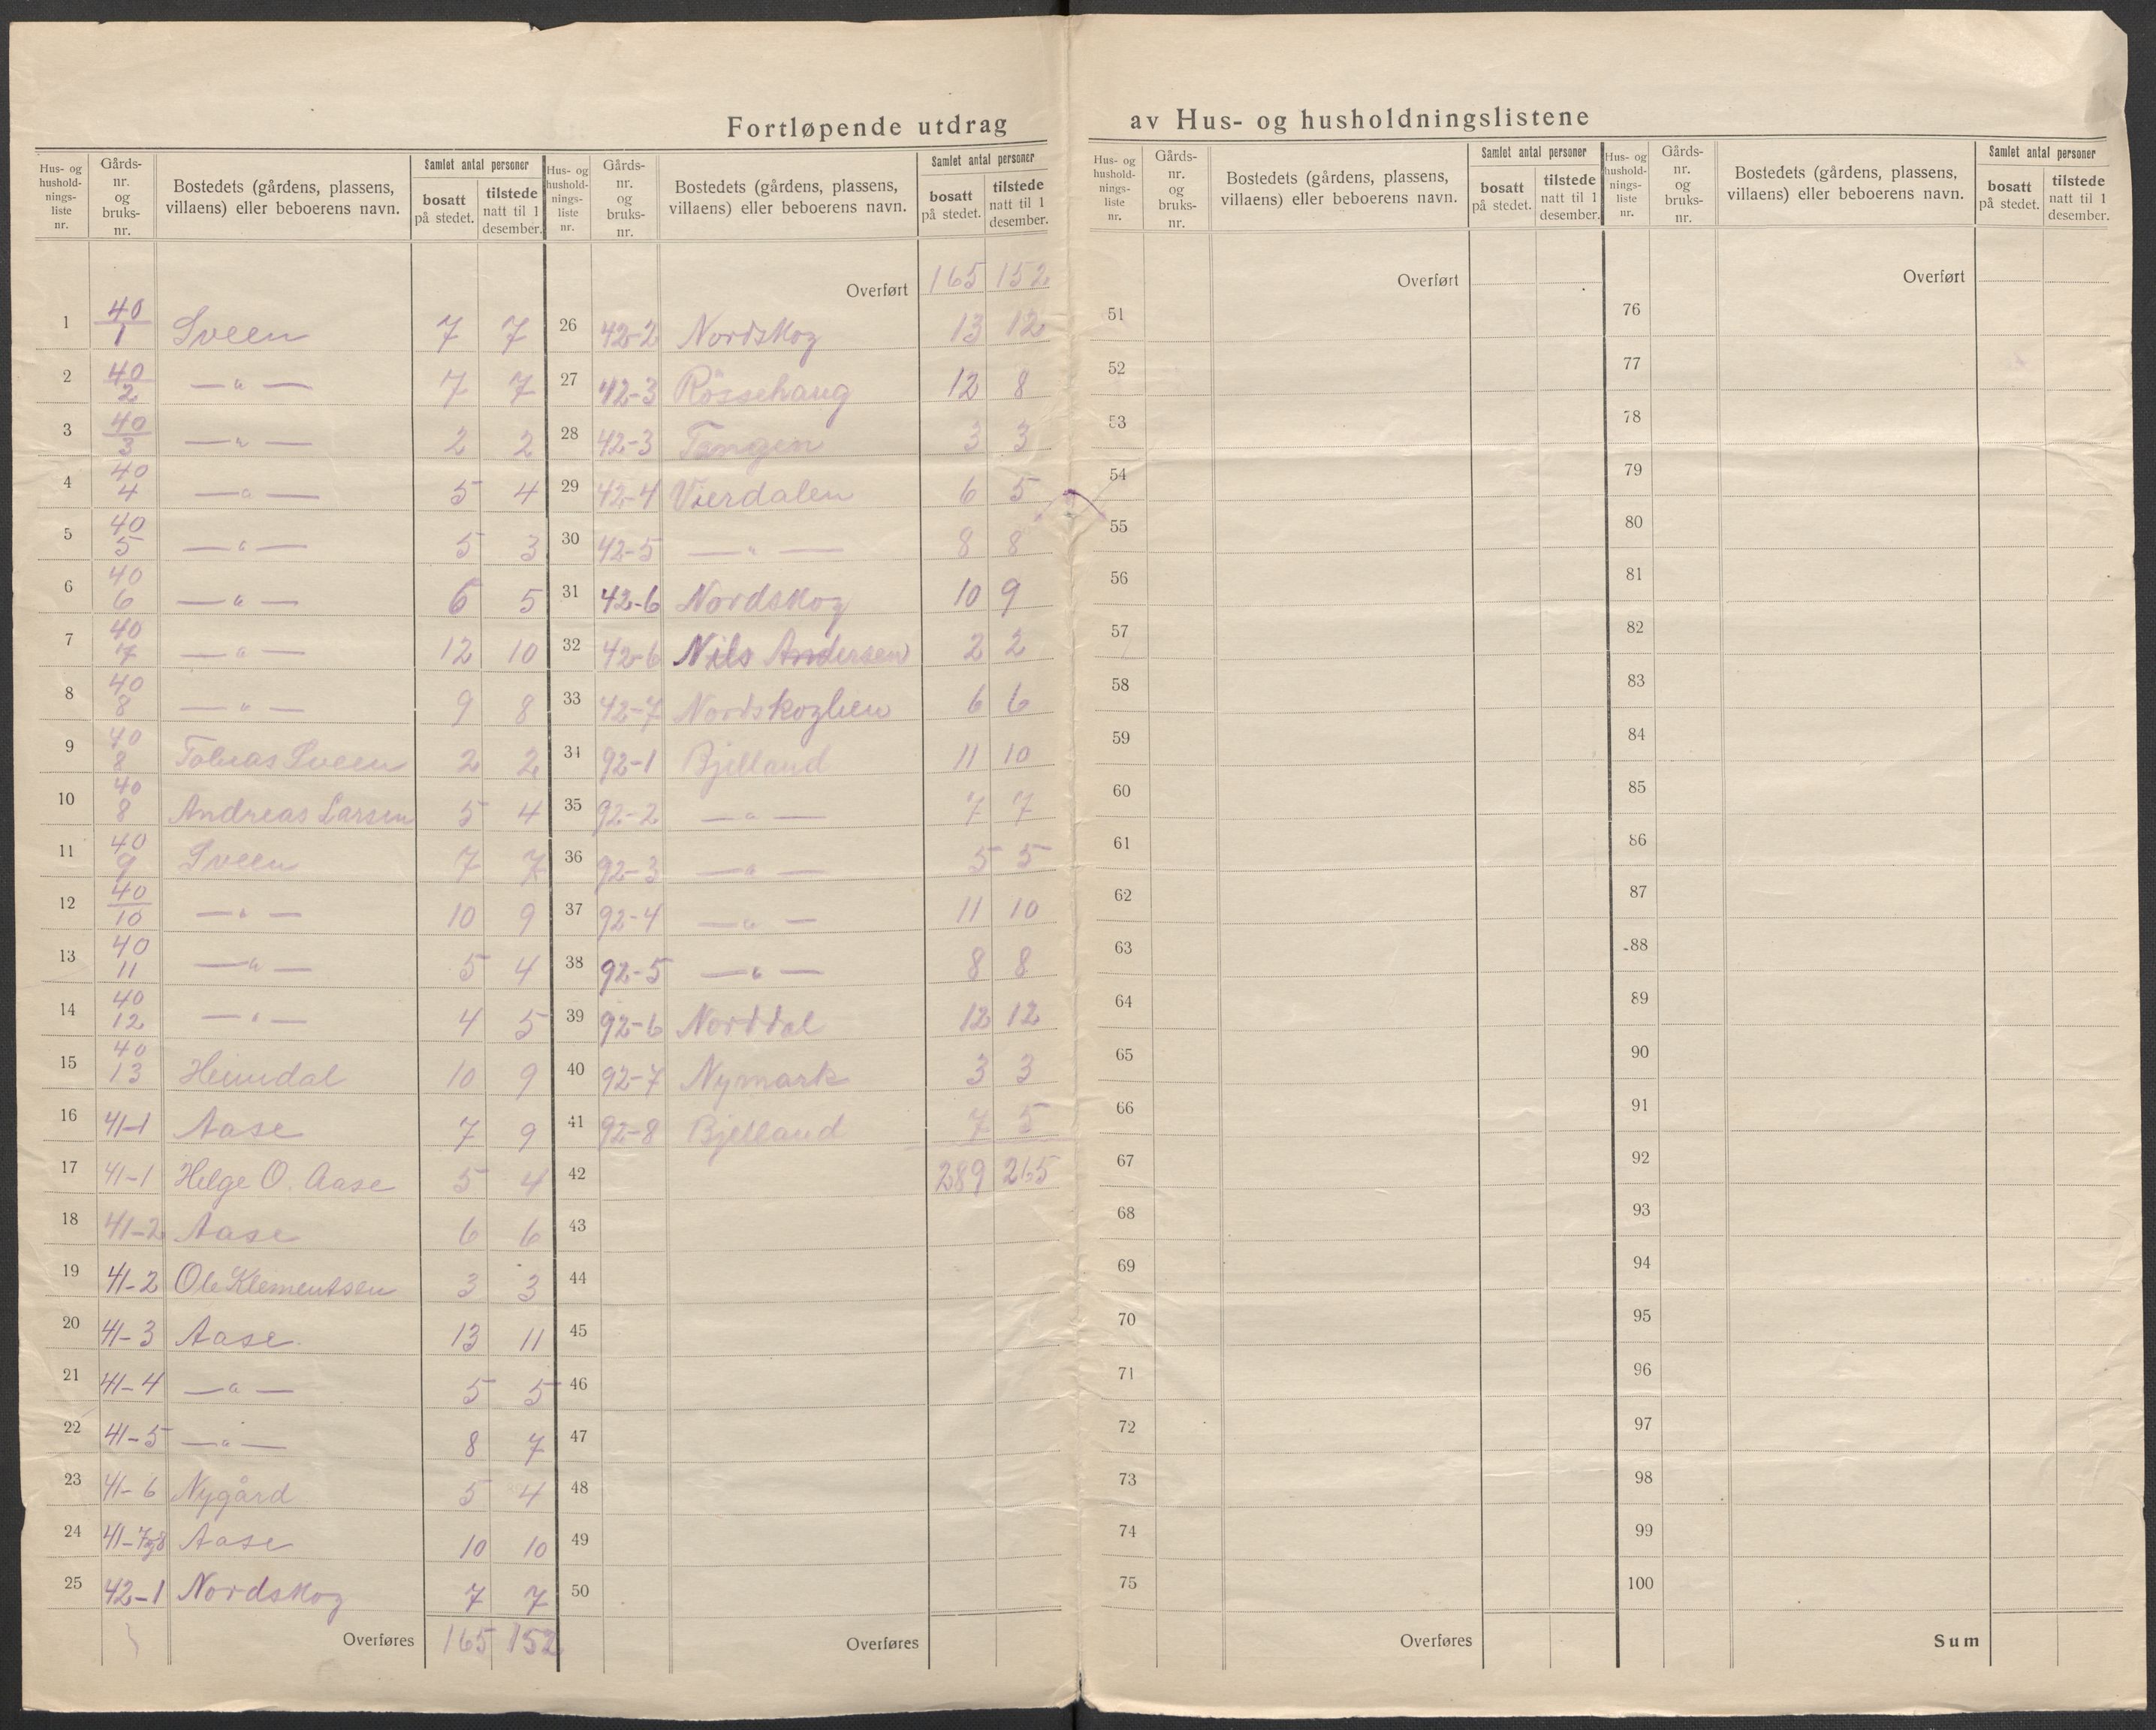 Fortløpende utdrag av Hus- og husholdningslistene
Hus- og hushold-nings-liste nr. | Gårds-nr. og bruks-nr. | Bostedets (gårdens, plassens, villaens) eller beboerens navn. | Samlet antal personer | bosatt på stedet. | tilstede natt til 1 desember.
1 40/1 Sveen 7 7
2 40/2 — " — 7 7
3 40/3 — " — 2 2
4 40/4 — " — 5 4
5 40/5 — " — 5 3
6 40/6 — " — 6 5
7 40/7 — " — 12 10
8 40/8 — " — 9 8
9 40/8 Tobias Sveen 2 2
10 40/8 Andreas Larsen 5 4
11 40/9 Sveen 7 7
12 40/10 — " — 10 9
13 40/11 — " — 5 4
14 40/12 — " — 4 5
15 40/13 Heimdal 10 9
16 41-1 Aase 7 9
17 41-1 Helge O. Aase 5 4
18 41-2 Aase 6 6
19 41-2 Ole Klementsen 3 3
20 41-3 Aase. 13 11
21 41-4 — " — 5 5
22 41-5 — " — 8 7
23 41-6 Nygård 5 4
24 41-7og8 Aase 10 10
25 42-1 Nordskog 7 7
Overføres 165 152
Hus- og hushold-nings-liste nr. | Gårds-nr. og bruks-nr. | Bostedets (gårdens, plassens, villaens) eller beboerens navn. | Samlet antal personer | bosatt på stedet. | tilstede natt til 1 desember.
Overført 165 152
26 42-2 Nordskog 13 12
27 42-3 Røssehaug 12 8
28 42-3 Tangen 3 3
29 42-4 Vierdalen 6 5
30 42-5 — " — 8 8
31 42-6 Nordskog 10 9
32 42-6 Nils Andersen 2 2
33 42-7 Nordskoglien 6 6
34 92-1 Bjelland 11 10
35 92-2 — " — 7 7
36 92-3 — " — 5 5
37 92-4 — " — 11 10
38 92-5 — " — 8 8
39 92-6 Norddal 12 12
40 92-7 Nymark 3 3
41 92-8 Bjelland 7 5
42 289 265
43
44
45
46
47
48
49
50
Overføres
Hus- og hushold-nings-liste nr. | Gårds-nr. og bruks-nr. | Bostedets (gårdens, plassens, villaens) eller beboerens navn. | Samlet antal personer | bosatt på stedet. | tilstede natt til 1 desember.
Overført
51
52
53
54
55
56
57
58
59
60
61
62
63
64
65
66
67
68
69
70
71
72
73
74
75
Overføres
Hus- og hushold-nings-liste nr. | Gårds-nr. og bruks-nr. | Bostedets (gårdens, plassens, villaens) eller beboerens navn. | Samlet antal personer | bosatt på stedet. | tilstede natt til 1 desember.
Overført
76
77
78
79
80
81
82
83
84
85
86
87
88
89
90
91
92
93
94
95
96
97
98
99
100
Sum